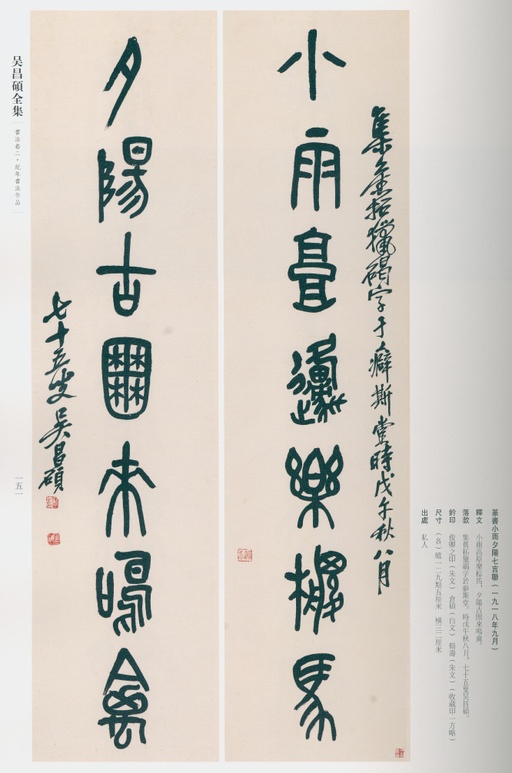 集舊拓獵碣字于癖斯堂時戊午秋八月
小雨高原樂馬
夕陽古囿來鳴禽
七十五叟吳昌碩
吳昌碩全集
書法卷二·紀年書法作品
一五一
篆書小雨夕陽七言聯(一九一八年九月)
釋文 小雨高原樂馬。夕陽古囿來鳴禽。
落款 集舊拓獵碣字于癖斯堂。時戊午秋八月。七十五叟吳昌碩。
鈐印 俊卿之印(朱文) 倉碩(白文) (朱文)(收藏印一方略)
尺寸 (各)縱一二九點五厘米 橫三二厘米
出處 私人